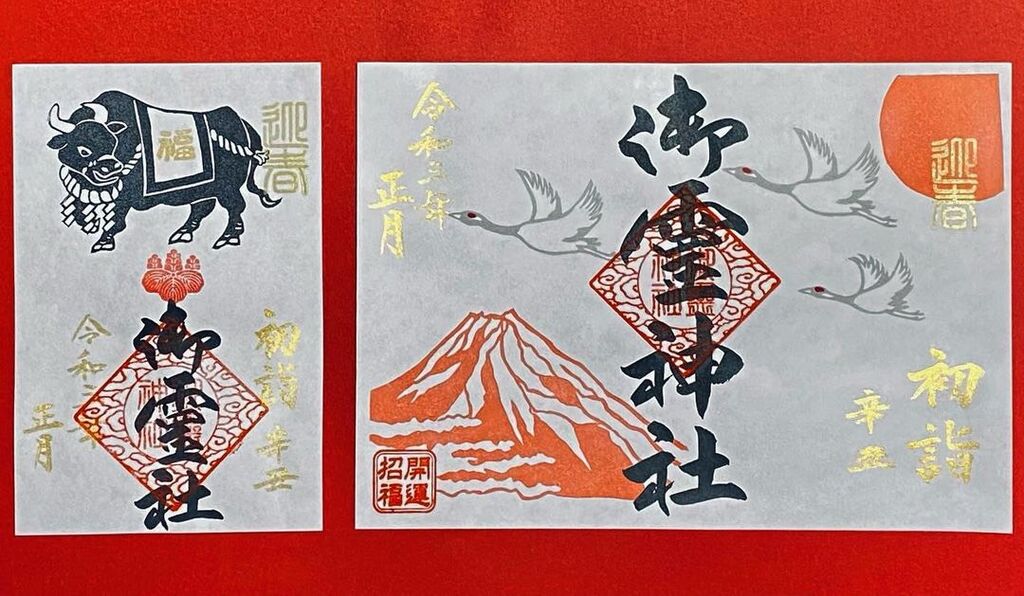 迎春
福
初詣 辛丑
御霊社
令和三年
正月
迎春
初詣
辛丑
御霊神社
令和三年
正月
開運
招福